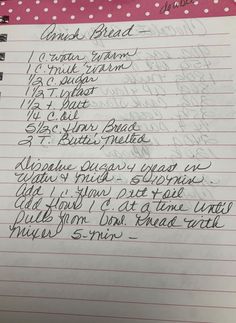 Amish Bread -
1 C. Water Warm
1 C. Milk Warm
1/2 C Sugar
1 1/2 T. Yeast
1 1/2 t Salt
1/4 C. Oil
5 1/2 C. Flour Bread
2 T. Butter Melted
Dissolve Sugar & Yeast in
Water & Milk - 5-10 min -
Add 1 C. Flour Salt & oil
add Flour 1 C. at a time until
Pulls from bowl Knead with
mixer 5-min -